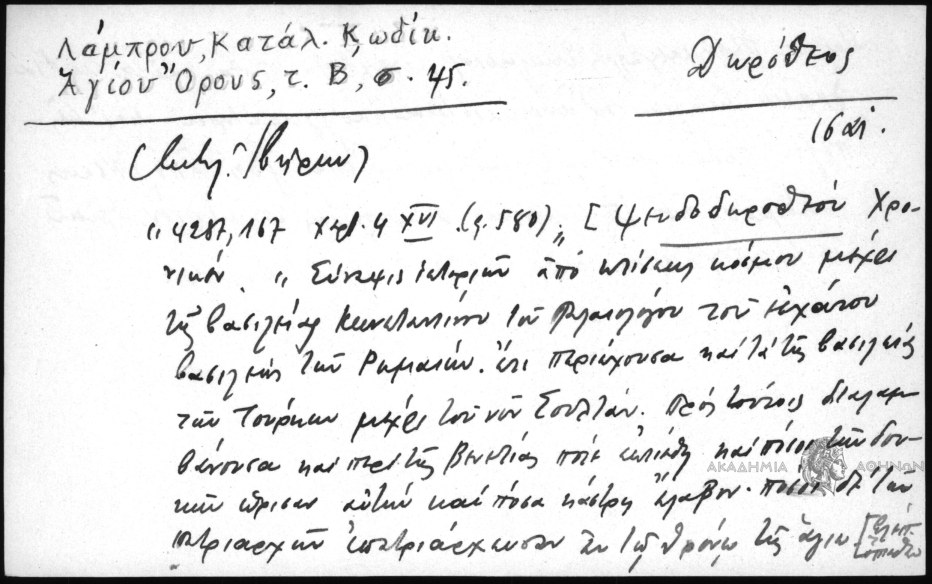 Λάμπρου, Κατάλ. Κωδίκ.
Ἁγίου Ὄρους, τ. Β, σ. 45.
Δωρόθεος
1521.
(Μον. Ἰβήρων)
"4287, 167 Χαρτ. 4 XVI (φ. 580)" [Ψευδοδωροθέου Χρο-
νικόν. "Σύνοψις ἱστοριῶν ἀπὸ κτίσεως κόσμου μέχρι
τῆς βασιλείας Κωνσταντίνου τοῦ Παλαιολόγου τοῦ ἐσχάτου
βασιλέως τῶν Ρωμαίων. ἔτι περιέχουσα καὶ τὰ τῆς βασιλείας
τῶν Τούρκων μέχρι τοῦ νῦν Σουλτάν. Πρὸς τούτοις διαλαμ-
βάνουσα καὶ περὶ τῆς Βενετίας πότε ἐκτίσθη καὶ πόσοι τῶν δου-
κῶν ὥρισαν αὐτὴν καὶ πόσα κάστρη ἔλαβον. πόσοι δὲ τῶν
πατριαρχῶν ἐπατριάρχευσαν ἐν τῷ θρόνῳ τῆς ἁγίου
ΑΚΑΔΗΜΙΑ ΑΘΗΝΩΝ